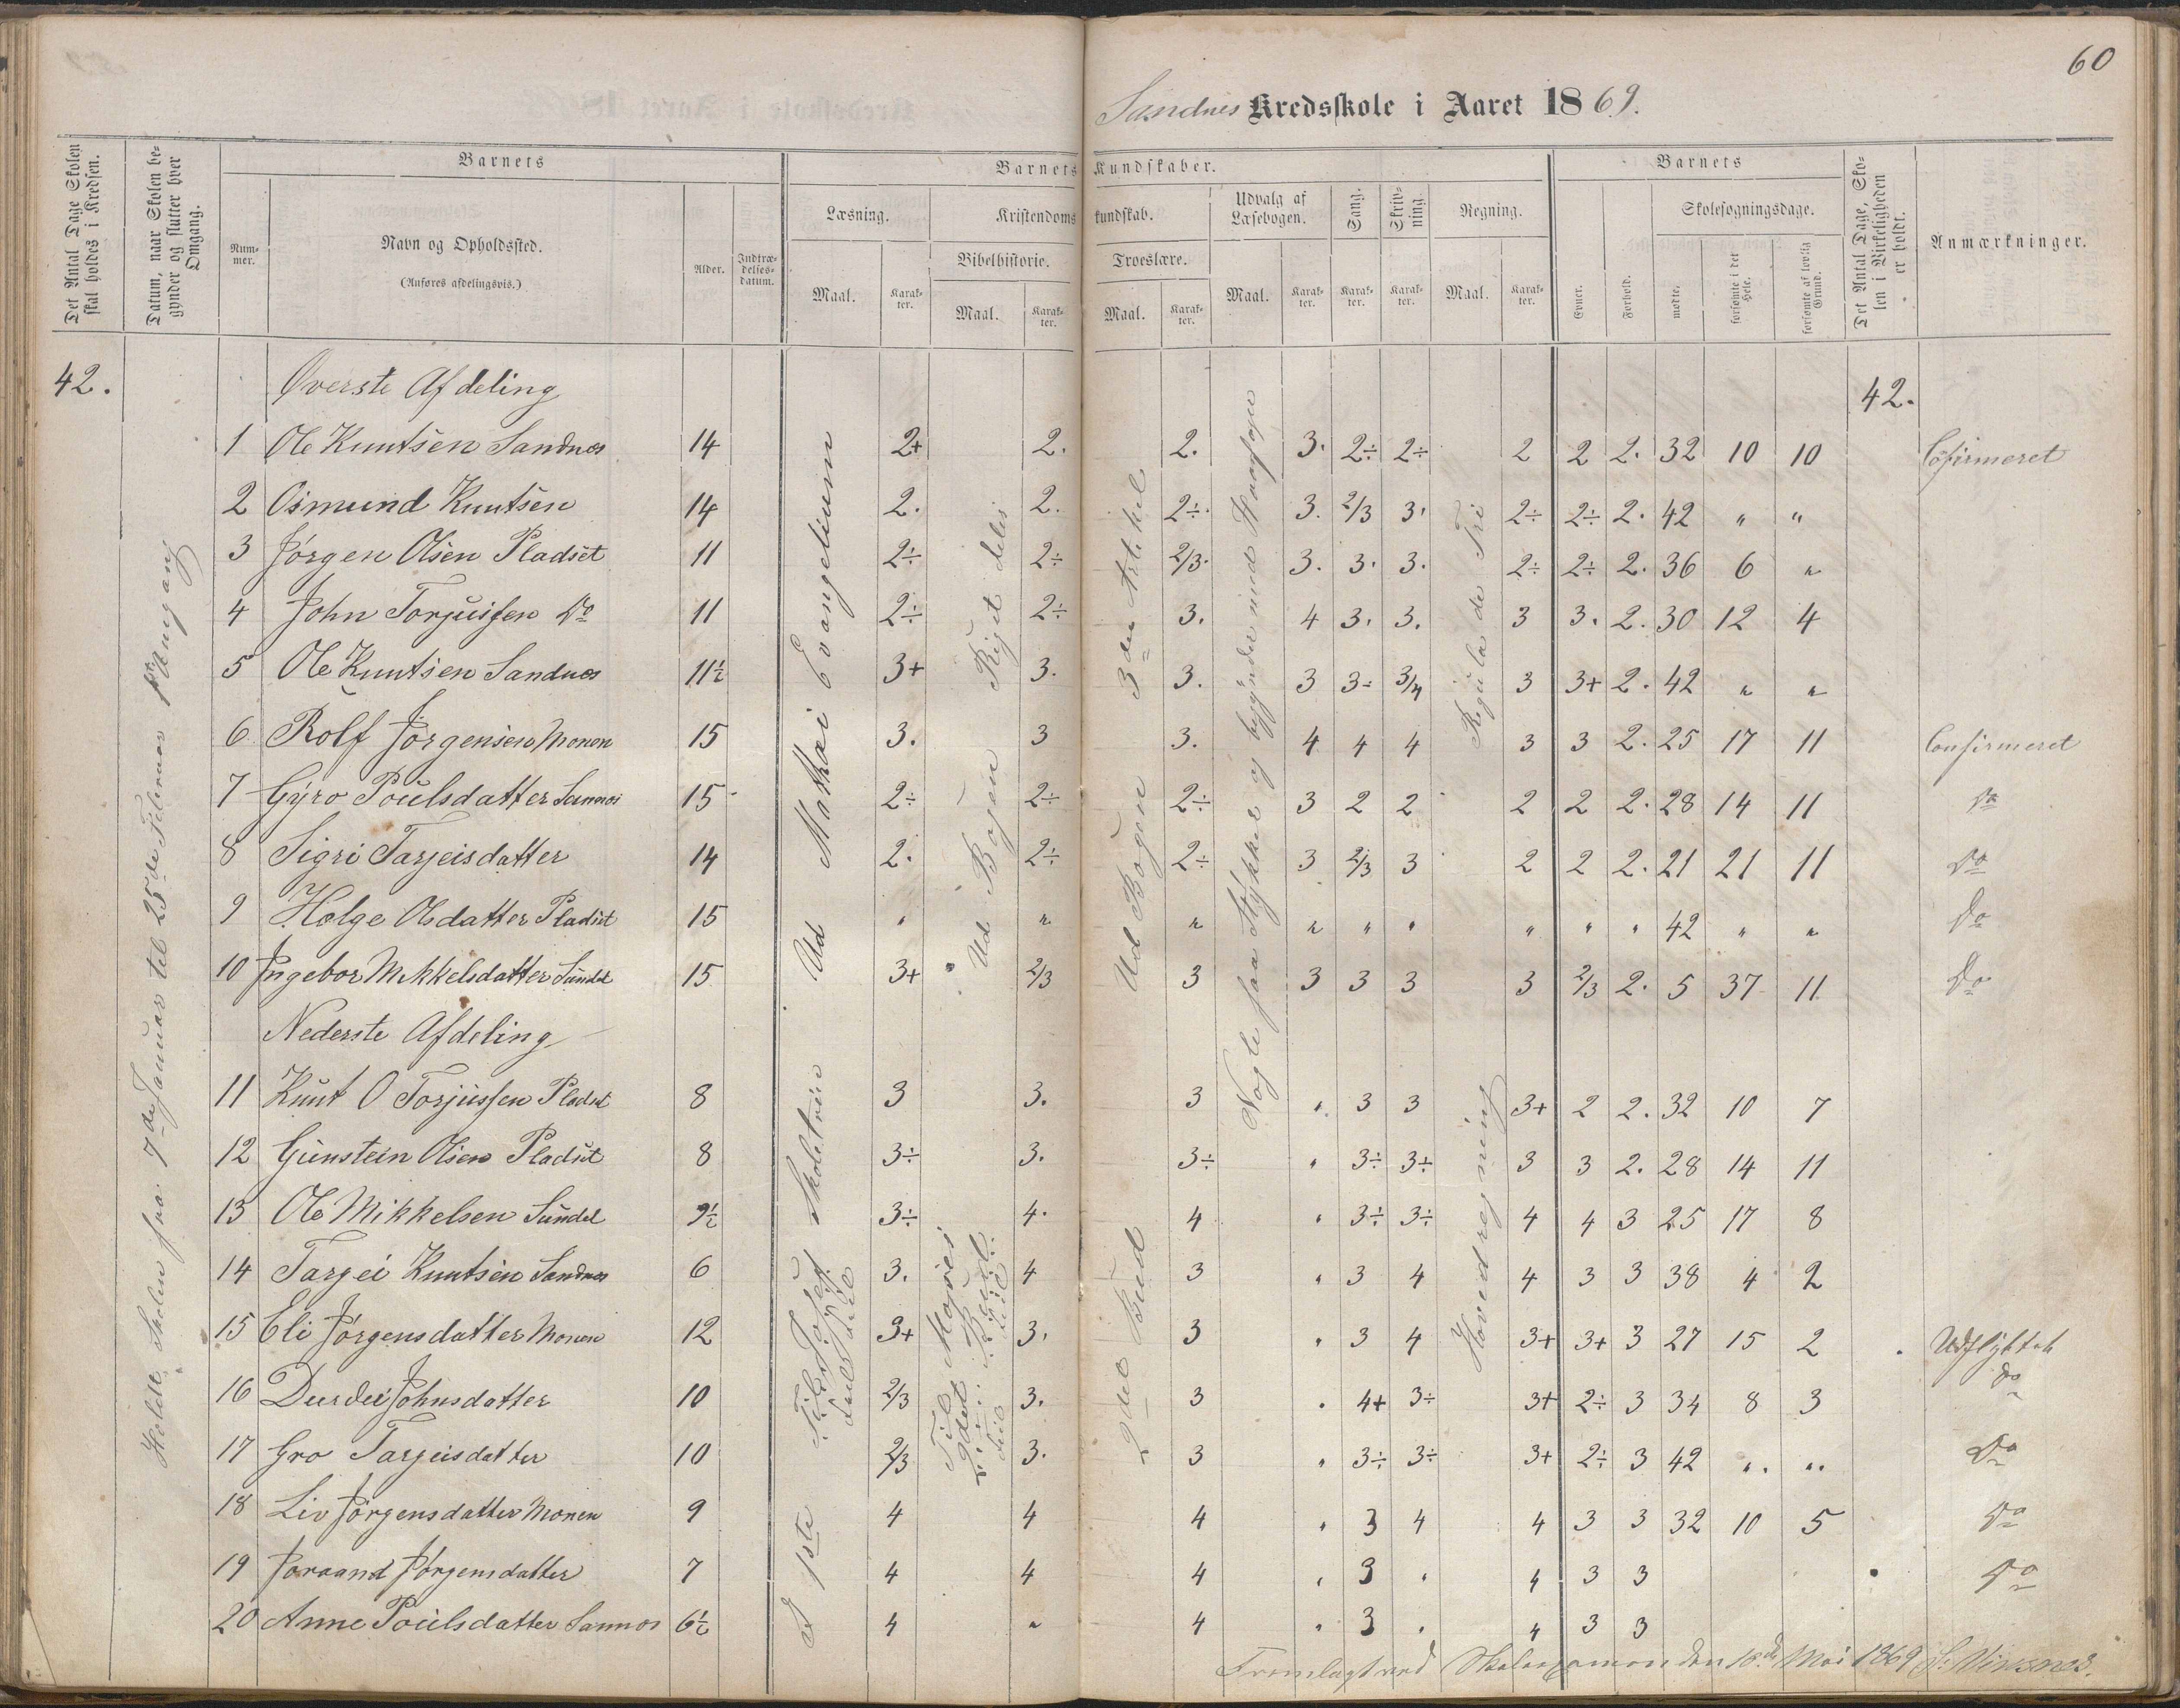 60
Sandnes Kredsskole i Aaret 1869.
Det Antal Dage Skolen skal holdes i Kredsen.
Datum, naar Skolen begynder og slutter hver Omgang.
Barnets
Nummer.
Navn og Opholdssted.
(Anføres afdelingsvis.)
Alder.
Indtrædelsesdatum.
Barnets Kundskaber.
Læsning.
Maal.
Karakter.
Kristendomskundskab.
Bibelhistorie.
Maal.
Karakter.
Troeslære.
Maal.
Karakter.
Udvalg af Læsebogen.
Maal.
Karakter.
Sang.
Karakter.
Skrivning.
Karakter.
Regning.
Maal.
Karakter.
Barnets
Evner.
Forhold.
Skolesøgningsdage.
mødte.
forsømte i det Hele.
forsømte af lovlig Grund.
Det Antal Dage, Skolen i Virkeligheden er holdt.
Anmærkninger.
42. Øverste Afdeling 42.
1 Ole Kuntsen Sandnes 14 2+ 2. 2. 3. 2÷ 2÷ 2 2 2. 32 10 10 Cofirmeret
2 Osmund Kuntsen 14 2. 2. 2÷ 3. 2/3 3. 2÷ 2÷ 2. 42 " "
3 Jørgen Olsen Pladset 11 2÷ 2÷ 2/3. 3. 3. 3. 2÷ 2÷ 2. 36 6 "
4 John Torjussen Do 11 2÷ 2÷ 3. 4 3. 3. 3 3. 2. 30 12 4
5 Ole Kuntsen Sandnes 11½ 3+ 3. 3. 3 3÷ 3/4 3 3+ 2. 42 " "
6 Rolf Jørgensen Monen 15 3. 3 3. 4 4 4 3 3 2. 25 17 11 Confirmeret
7 Gyro Poulsdatter Sannes 15 2÷ 2÷ 2÷ 3 2 2 2 2 2. 28 14 11 Do
8 Sigri Tarjeisdatter 14 2. 2÷ 2÷ 3 2/3 3 2 2 2. 21 21 11 Do
9 Holge Olsdatter Pladset 15 " " " " " " " " " 42 " " Do
10 Ingebor Mikkelsdatter Sundet 15 3+ 2/3 3 3 3 3 3 2/3 2. 5 37 11 Do
Nederste Afdeling
11 Kunt O Torjussen Pladset 8 3 3. 3 " 3 3 3+ 2 2. 32 10 7
12 Gunstein Olsen Pladset 8 3÷ 3. 3÷ " 3÷ 3÷ 3 3 2. 28 14 11
13 Ole Mikkelsen Sundet 9½ 3÷ 4. 4 " 3÷ 3÷ 4 4 3 25 17 8
14 Targei Kuntsen Sandnes 6 3. 4 3 " 3 4 4 3 3 38 4 2
15 Eli Jørgensdatter Monen 12 3+ 3. 3 " 3 4 3+ 3+ 3 27 15 2 Udflyttet
16 Durdei Johnsdatter 10 2/3 3. 3 " 4+ 3÷ 3+ 2÷ 3 34 8 3 do
17 Gro Tarjeisdatter 10 2/3 3. 3 " 3÷ 3÷ 3+ 2÷ 3 42 " " Do
18 Liv Jørgensdatter Monen 9 4 4 4 " 3 4 4 3 3 32 10 5 Do
19 Joraand Jørgensdatter 7 4 4 4 " 3 " 4 3 3 Do
20 Anne Poulsdatter Sannes 6½ 4 " 4 " 3 " 4 3 3
Holdt Skolen fra 7de Januar til 25de Februar 1ste Omgang
Ud Mathæi Evangelium
Ud Bogen
3die Artikel
Ud Bogen
Nogle faa Stykker og begynder med
Regula de Tri
Til Josef
Til Moses
2det Bud
Hovedregning
Fremlagt ved Skoleexamen den 18de Mai 1869